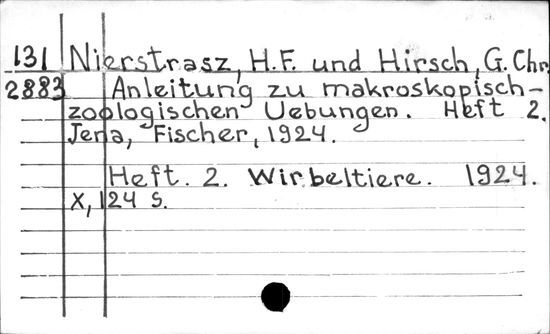 131 Nierstrasz, H.F. und Hirsch, G. Chr.
2883 Anleitung zu makroskopisch-
zoologischen Uebungen. Heft 2.
Jena, Fischer, 1924.
Heft. 2. Wirbeltiere. 1924.
X, 124 S.